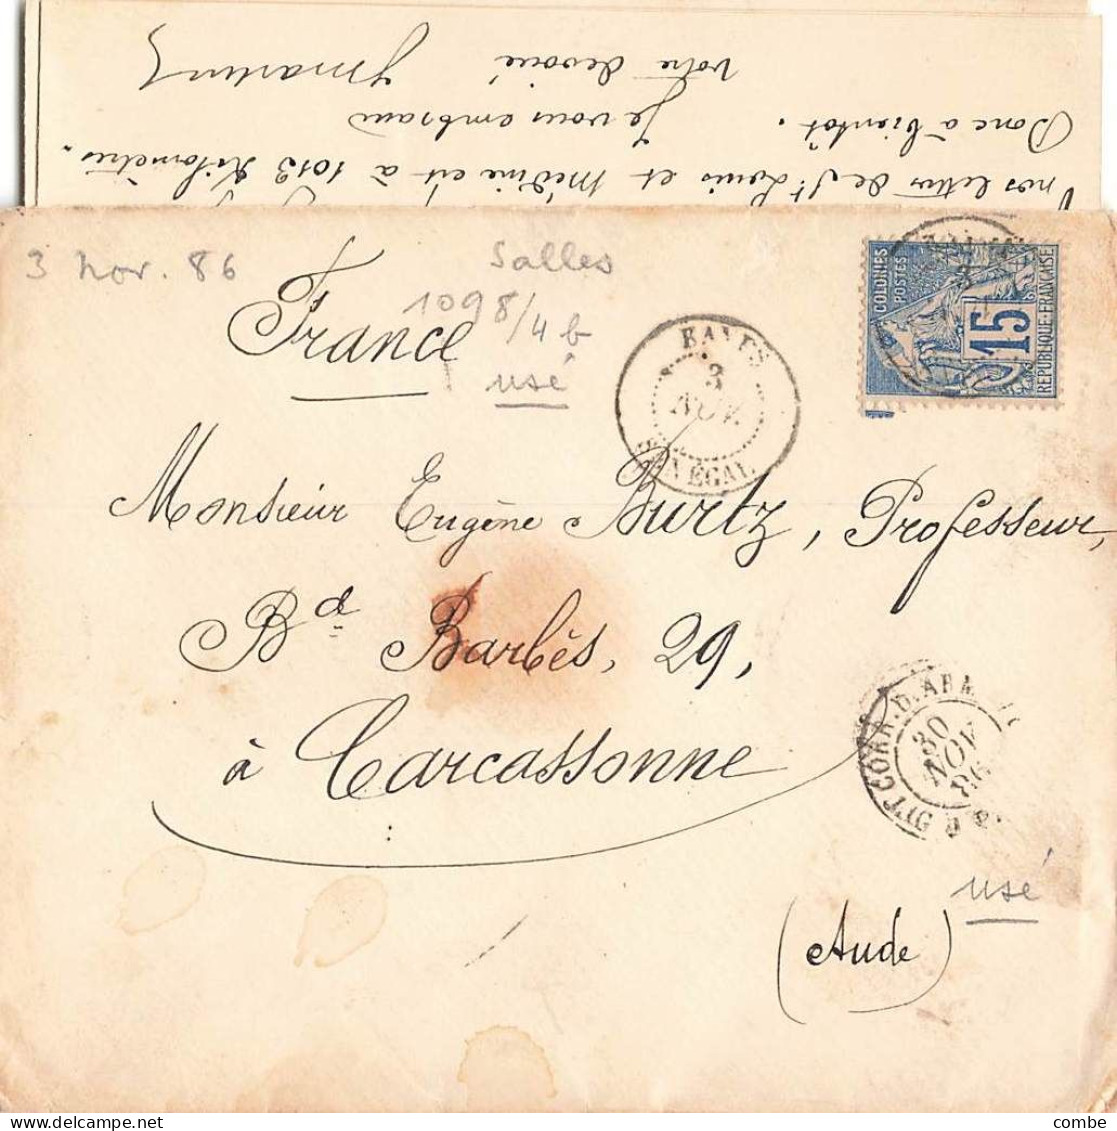 nos lettres de St Louis et Médine est à 1013 kilomètres.
Donc à bientôt. Je vous embrasse
votre dévoué
3 Nov. 86
Salles
1098/4 b
usé
France
SÉNÉGAL
3
NOV.
COLONIES
POSTES
15
REPUBLIQUE FRANÇAISE
Monsieur Eugène Burtz, Professeur,
Bd Barbès, 29,
à Carcassonne
(Aude)
CORR. D. ARM.
30
NOV
86
usé
combe